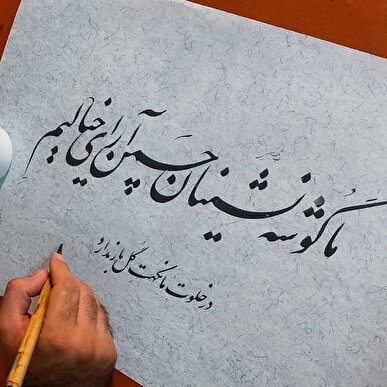 ما گوشه نشینان چمن آرای خیالیم
در خلوت ما نکهت گل بار ندارد